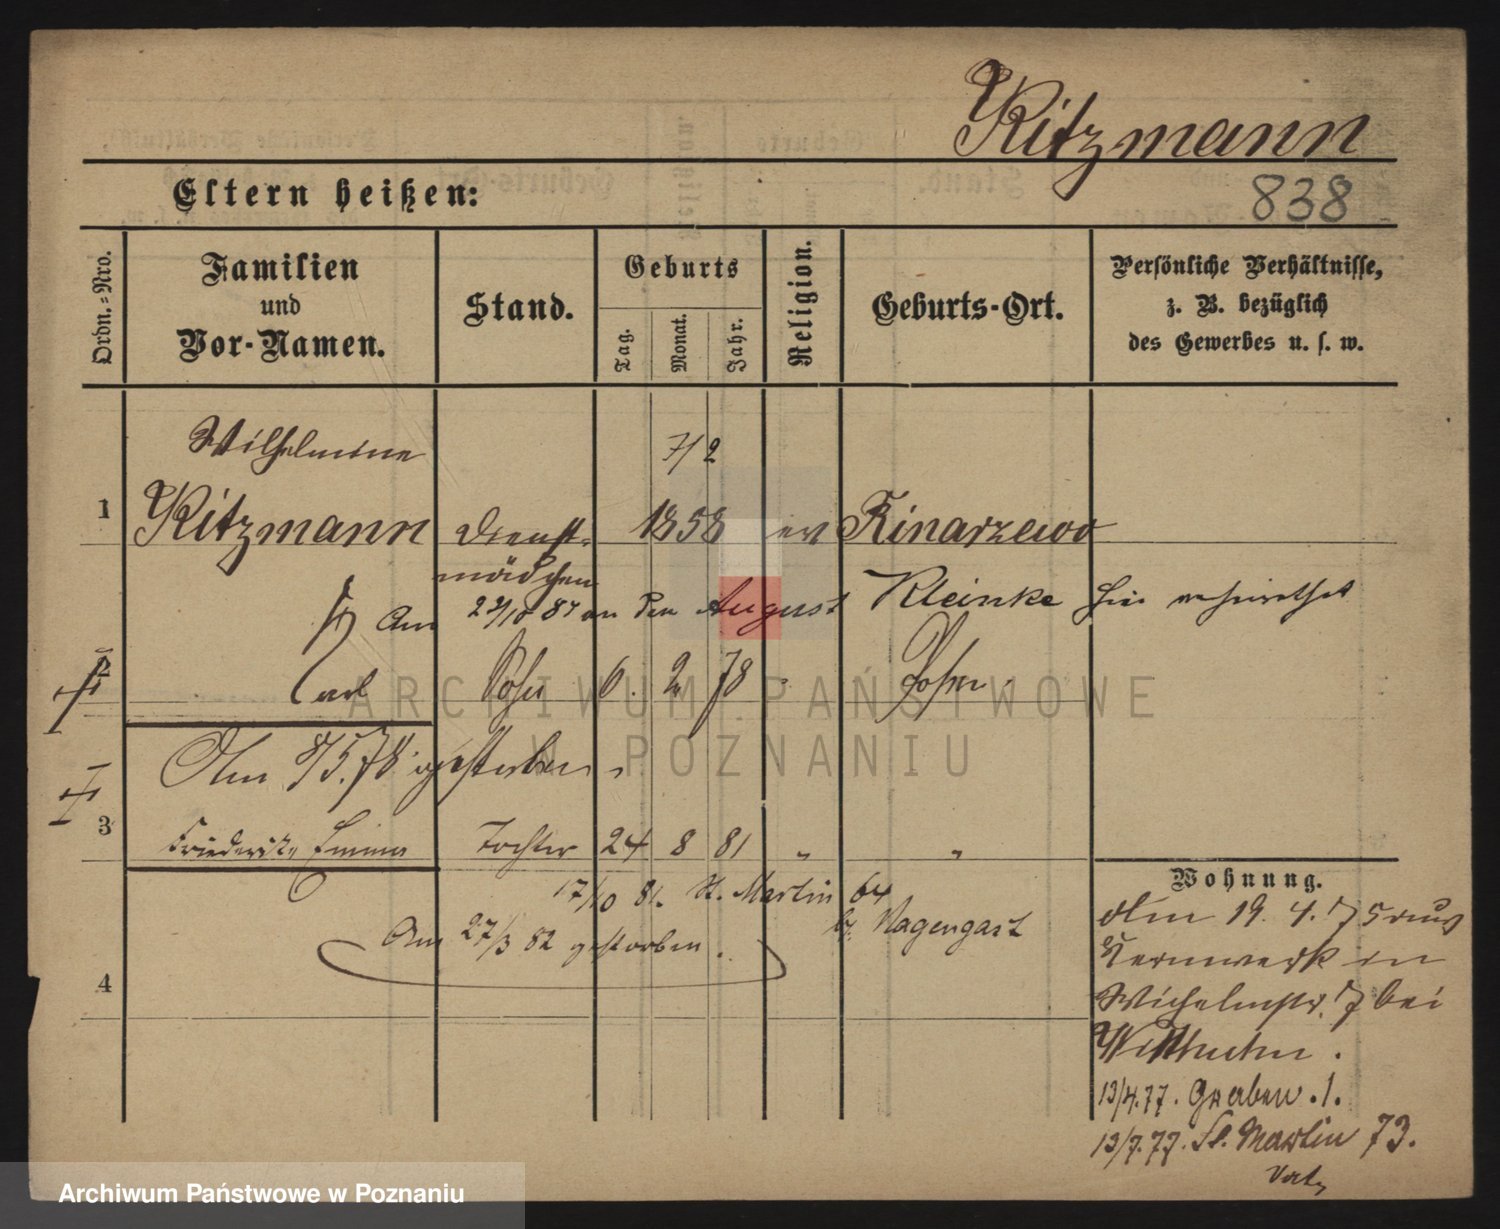 Ritzmann
Eltern heißen:
838
Ordn.-Nro.
Familien
und
Vor-Namen.
Stand.
Geburts
Tag.
Monat.
Jahr.
Religion.
Geburts-Ort.
Persönliche Verhältnisse,
z. B. bezüglich
des Gewerbes u. s. w.
Wilhelmine
7/2
1 Ritzmann Dienst- 1858 ev Kinarzewo
mädchen
Am 29/10 87 an den August Kleinke hier verheirathet
2 Carl Sohn 6. 2. 78 Posen.
Am 8/5.78 gestorben.
3 Friederike Emma Tochter 24 8 81 " "
17/10 81. St. Martin 64
b. Nagengast
Am 27/3 82 gestorben.
4
Wohnung.
Am 19. 4. 75 aus
Kernwerk in
Wilhelmstr. 7 bei
13/4.77. Graben. 1.
13/7.77. St. Martin 73.
ARCHIWUM PAŃSTWOWE
W POZNANIU
Archiwum Państwowe w Poznaniu